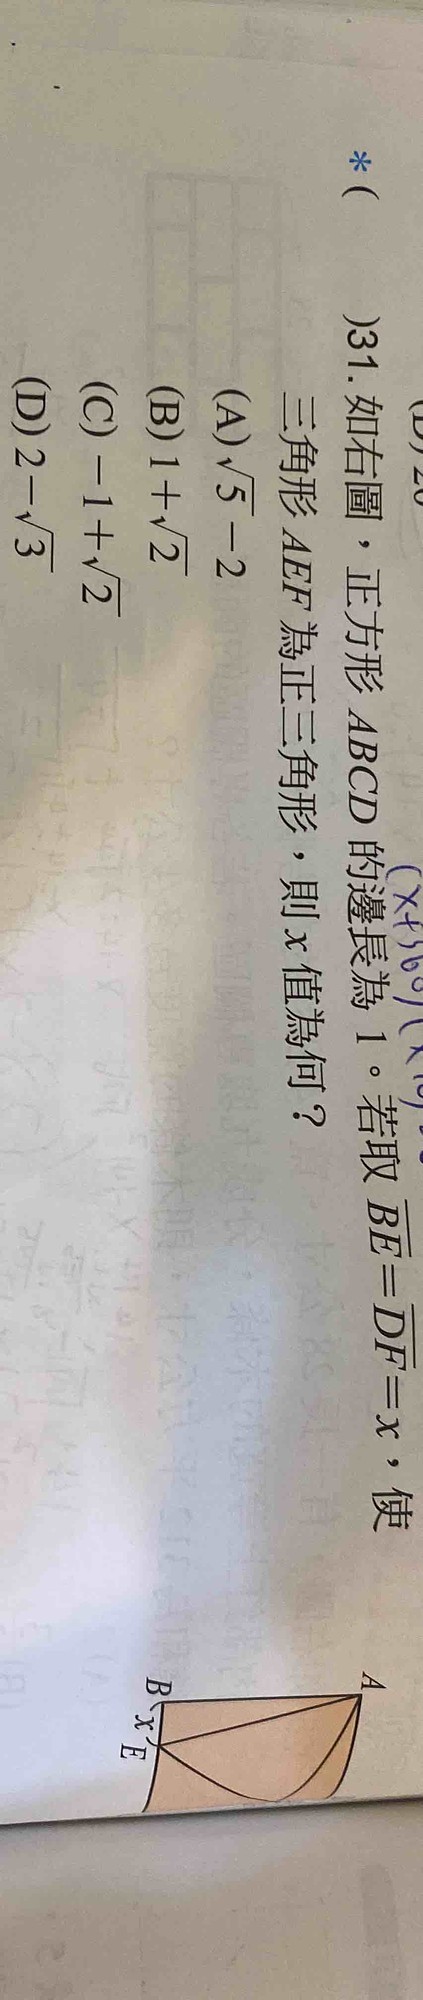 (D) 20
(x+360)(x
*( )31. 如右圖，正方形 ABCD 的邊長為 1。若取 BE=DF=x，使
三角形 AEF 為正三角形，則 x 值為何？
(A) √5－2
(B) 1＋√2
(C) －1＋√2
(D) 2－√3
A
B x E